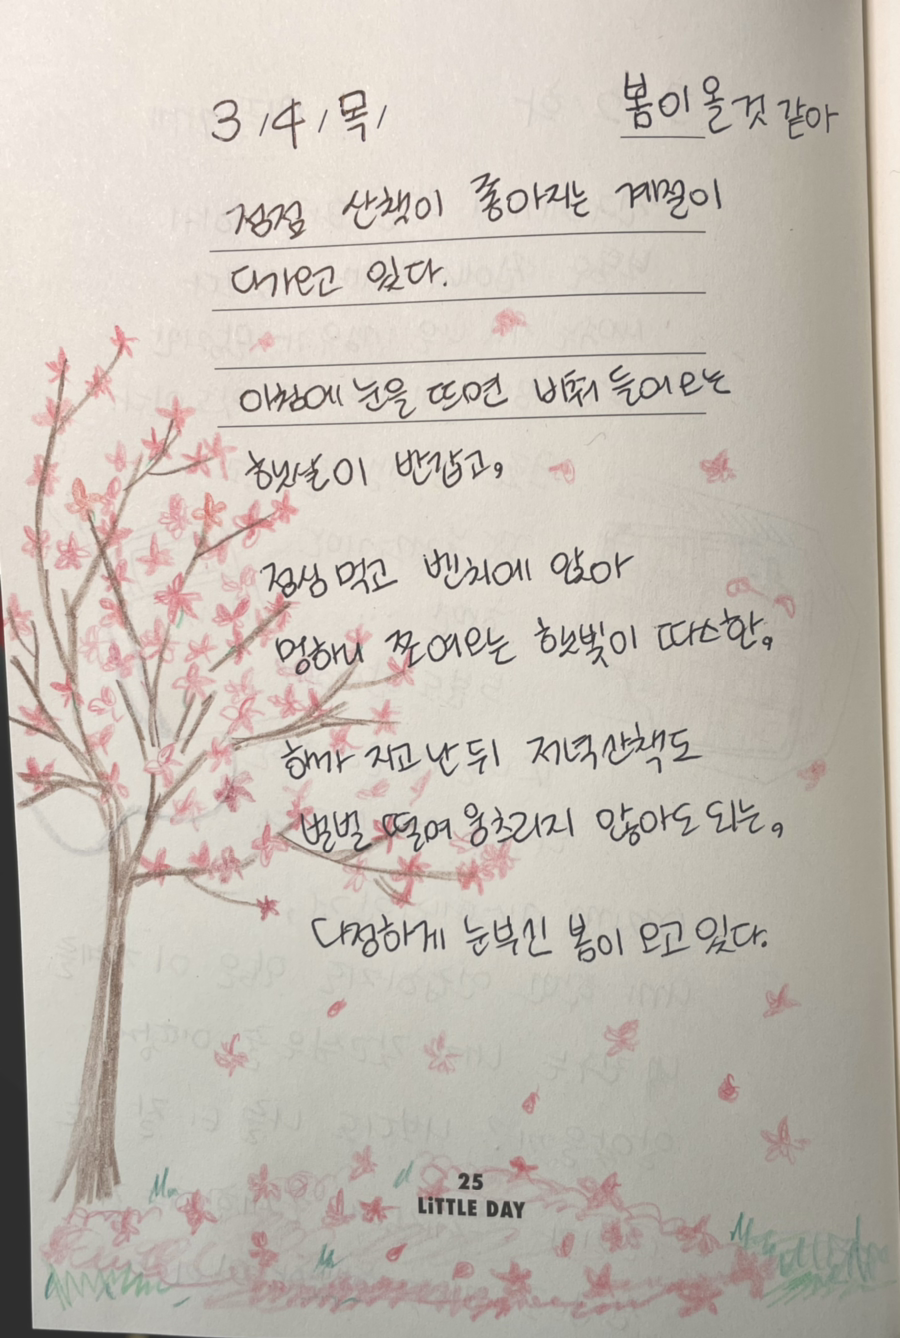 3/4/목/
봄이 올 것 같아
점점 산책이 좋아지는 계절이
다가오고 있다.
아침에 눈을 뜨면 비춰 들어오는
햇살이 반갑고,
점심 먹고 벤치에 앉아
멍하니 쪼여오는 햇빛이 따스한,
해가 지고 난 뒤 저녁산책도
벌벌 떨며 웅크리지 않아도 되는,
다정하게 눈부신 봄이 오고 있다.
25
LiTTLE DAY